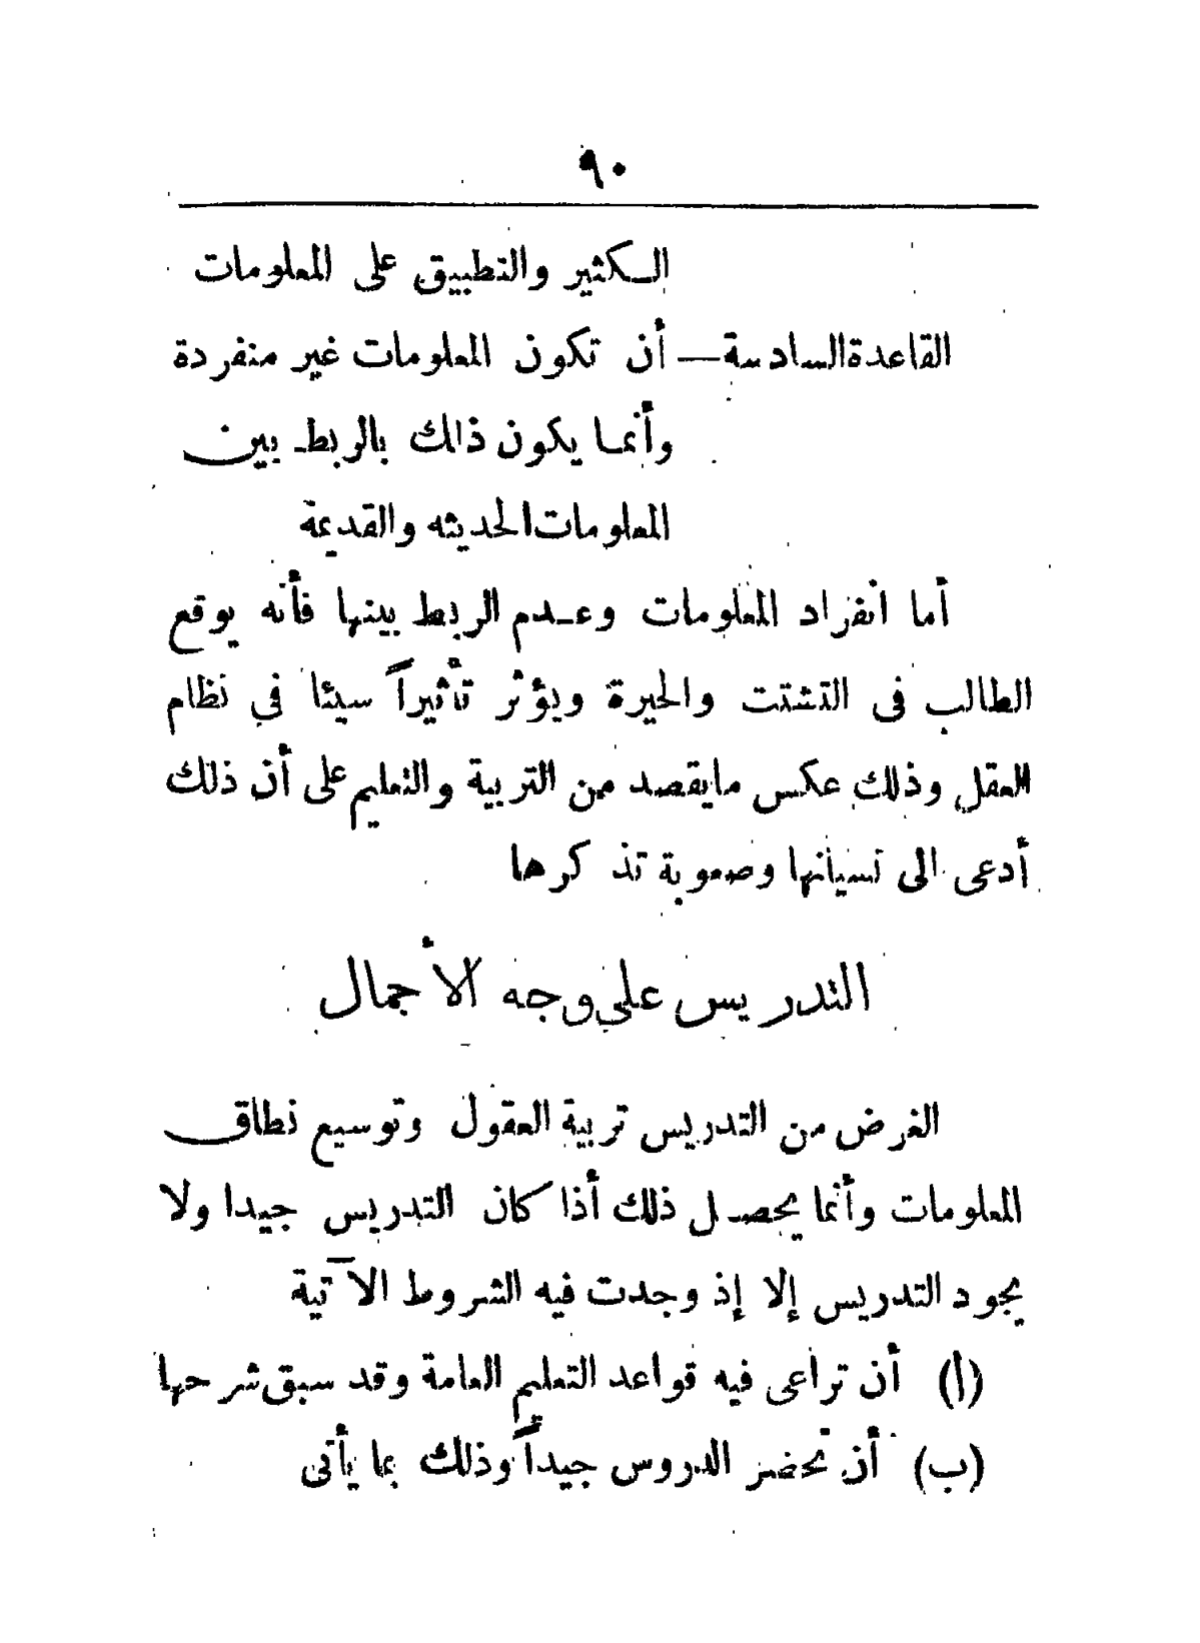 ٩٠
الكثير والتطبيق على المعلومات
القاعدة السادسة — أن تكون المعلومات غير منفردة
وأنما يكون ذلك بالربط بين
المعلومات الحديثه والقديمة
أما انفراد المعلومات وعدم الربط بينها فأنه يوقع
الطالب فى التشتت والحيرة ويؤثر تأثيراً سيئا في نظام
العقل وذلك عكس مايقصد من التربية والتعليم على أن ذلك
أدعى الى نسيانها وصعوبة تذكرها
التدريس على وجه الأجمال
الغرض من التدريس تربية العقول وتوسيع نطاق
المعلومات وأنما يحصل ذلك أذا كان التدريس جيدا ولا
يجود التدريس إلا إذ وجدت فيه الشروط الآتية
(أ) أن تراعى فيه قواعد التعليم العامة وقد سبق شرحها
(ب) أن تحضر الدروس جيداً وذلك بما يأتى